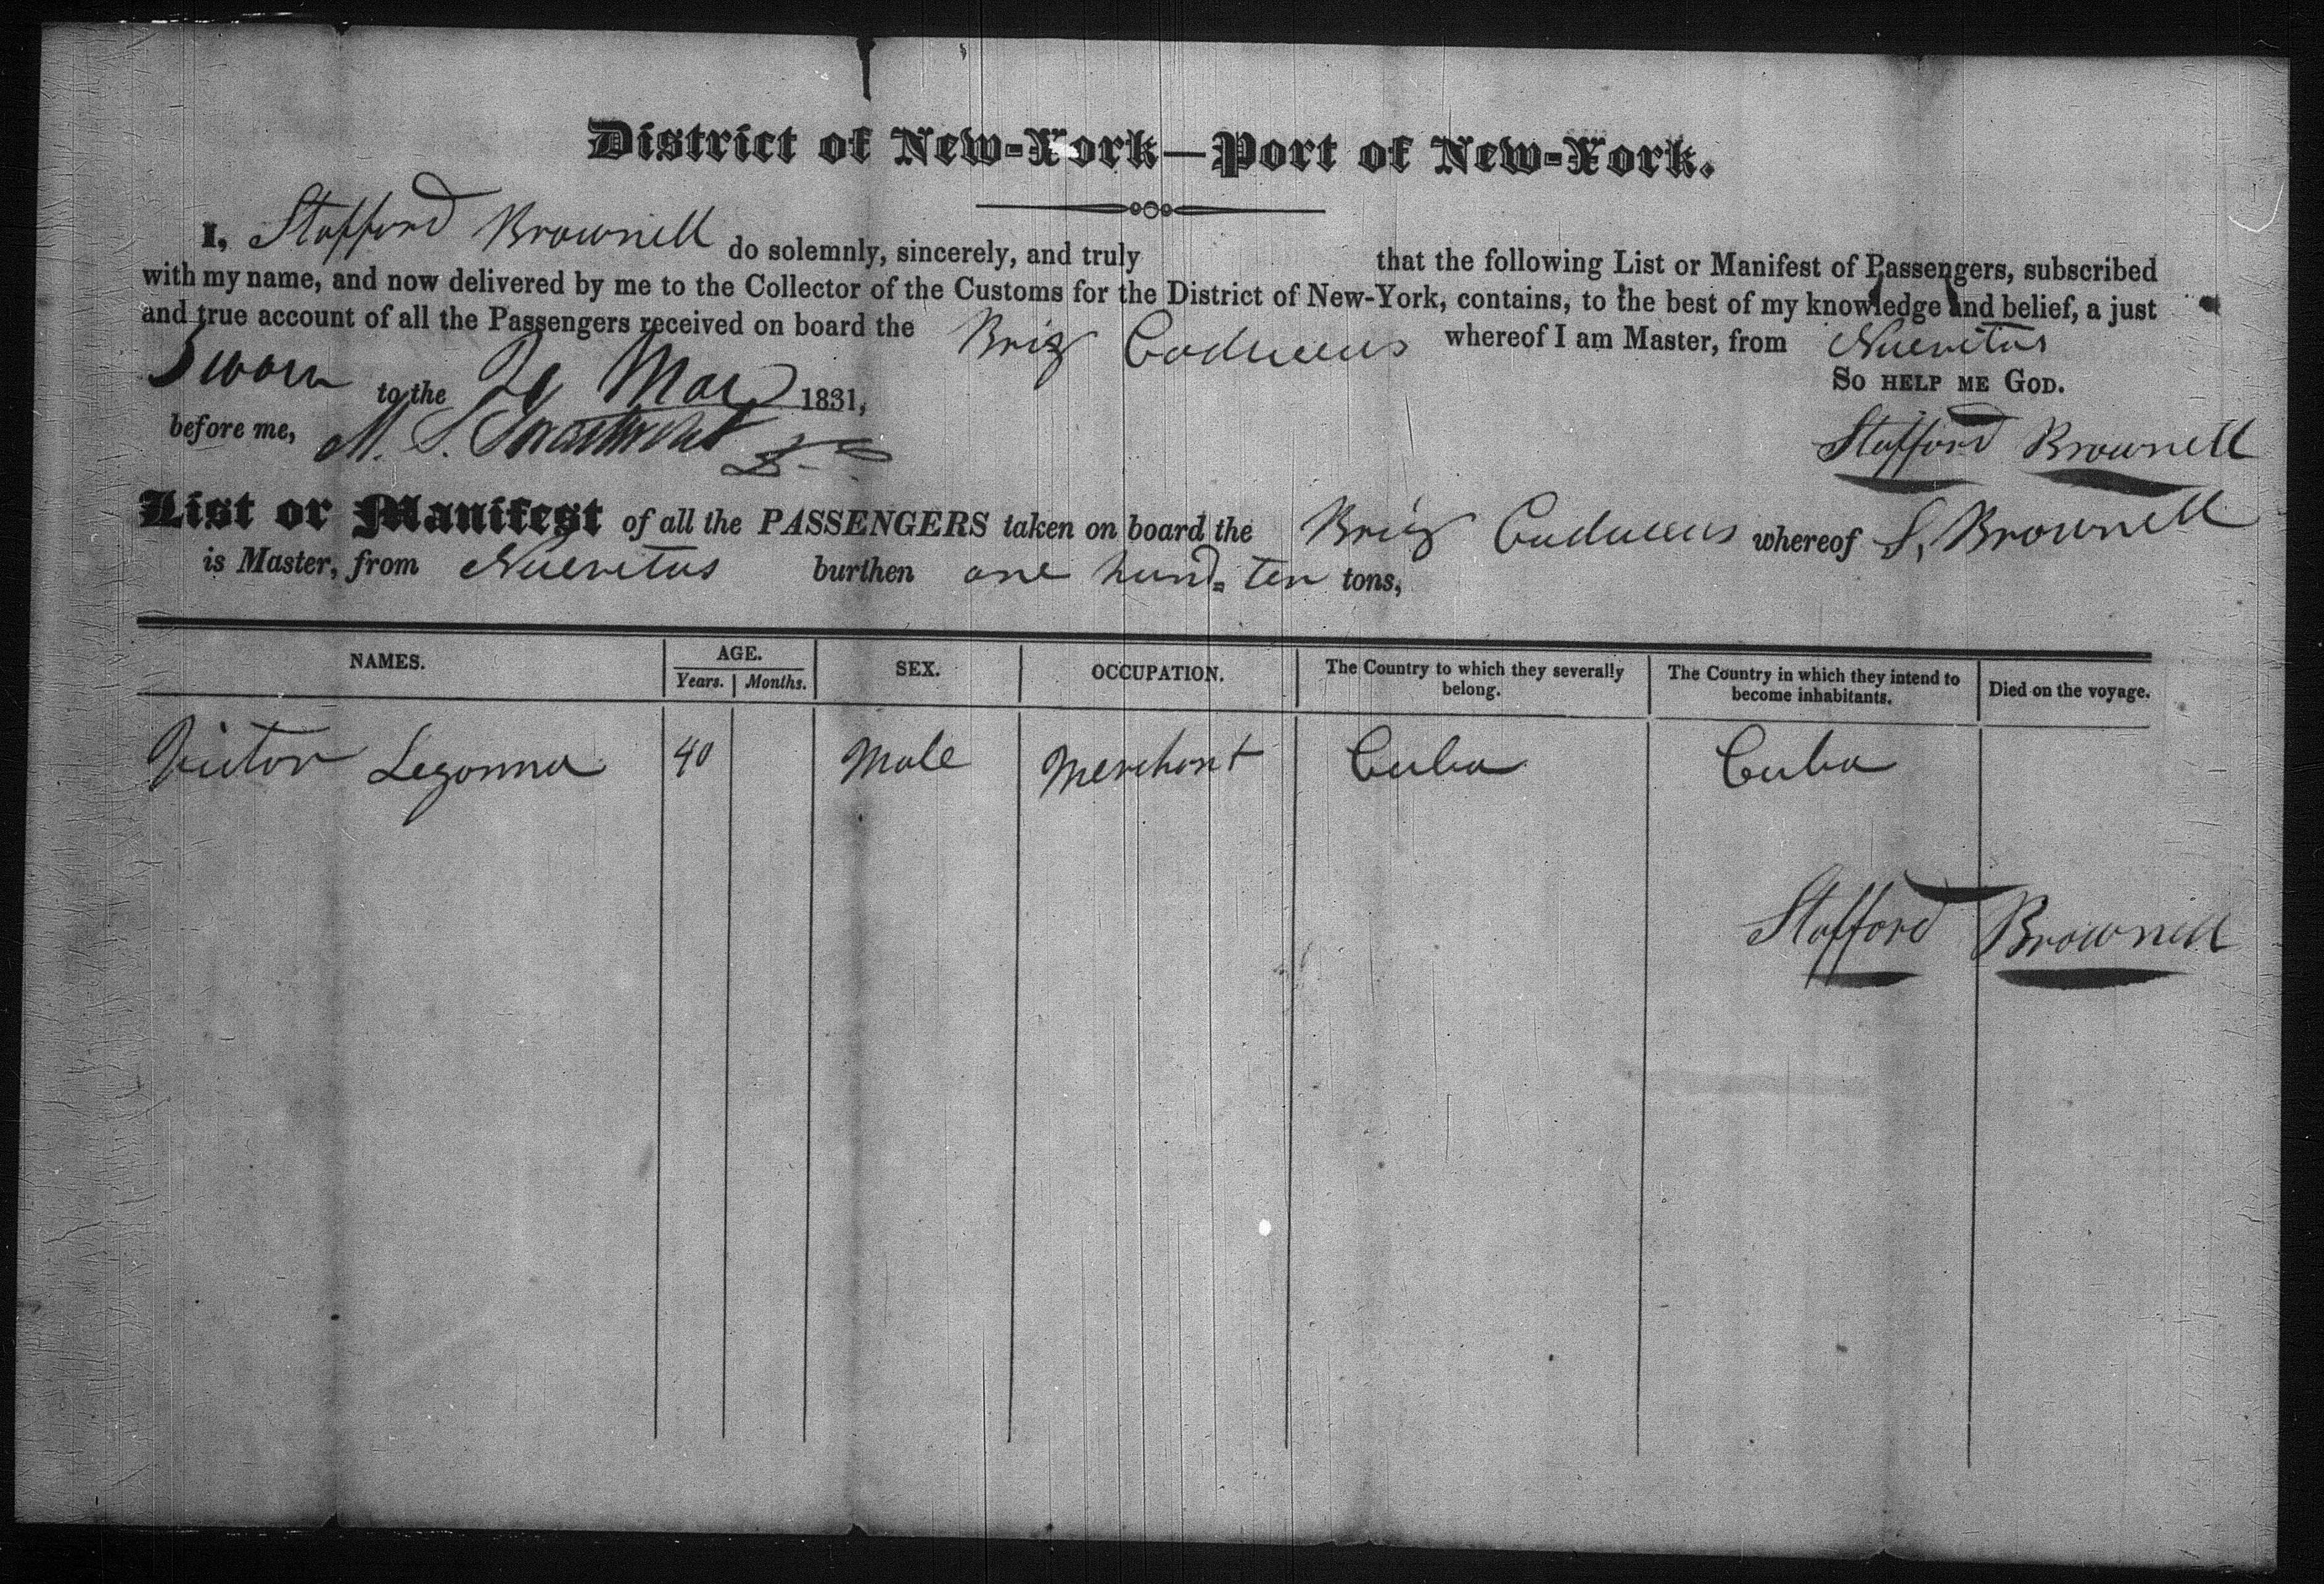 District of New-York—Port of New-York.
I, Stafford Brownell do solemnly, sincerely, and truly that the following List or Manifest of Passengers, subscribed
with my name, and now delivered by me to the Collector of the Customs for the District of New-York, contains, to the best of my knowledge and belief, a just
and true account of all the Passengers received on board the Brig Caduceus whereof I am Master, from Nuevitas
Sworn to the May 1831, SO HELP ME GOD.
before me, M. S. Stafford Brownell
List or Manifest of all the PASSENGERS taken on board the Brig Caduceus whereof S, Brownell
is Master, from Nuevitas burthen one hund. ten tons,
NAMES. AGE. SEX. OCCUPATION. The Country to which they severally belong. The Country in which they intend to become inhabitants. Died on the voyage.
Years. Months.
Victor 40 Male Merchant Cuba Cuba
Stafford Brownell